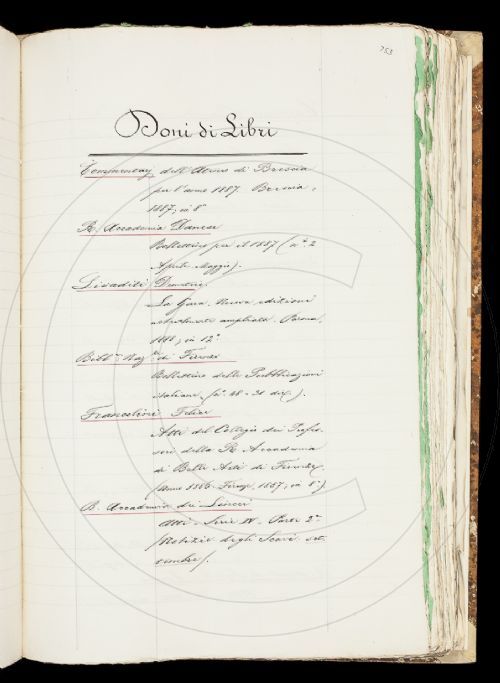 753
Doni di Libri
Commentary dell'Ateneo di Brescia
per l'anno 1887. Brescia,
1887, in 8°
R. Accademia
Bollettino per il 1887 (n° 2
Aprile-Maggio).
Livaditi Demetrio.
La Nuova edizione
ampliata. Parma,
in 12°
Bibl.ca Naz.le di Firenze
Bollettino delle Pubblicazioni
italiane (n. 48 - 31 dic.).
Francolini Felice
Atti del Collegio dei Profes-
sori della R. Accademia
di Belle Arti di Firenze,
(Anno 1886. Firenze, 1887, in 8°)
R. Accademia dei Lincei
Atti - Serie IV - Parte 2a
(Notizie degli Scavi set-
tembre).